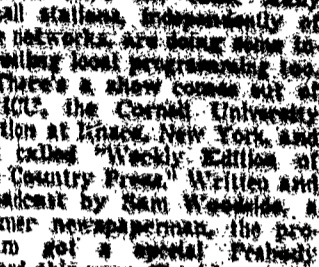 all stations, independently of
networks, are doing some in-
local programming too.
There's a show comes out of
the Cornell University
tion at Ithaca, New York, and
called "Weekly Edition of
Country Press." Written and
by Sam Woodside, a
mer newspaperman, the pro-
got a special Peabody